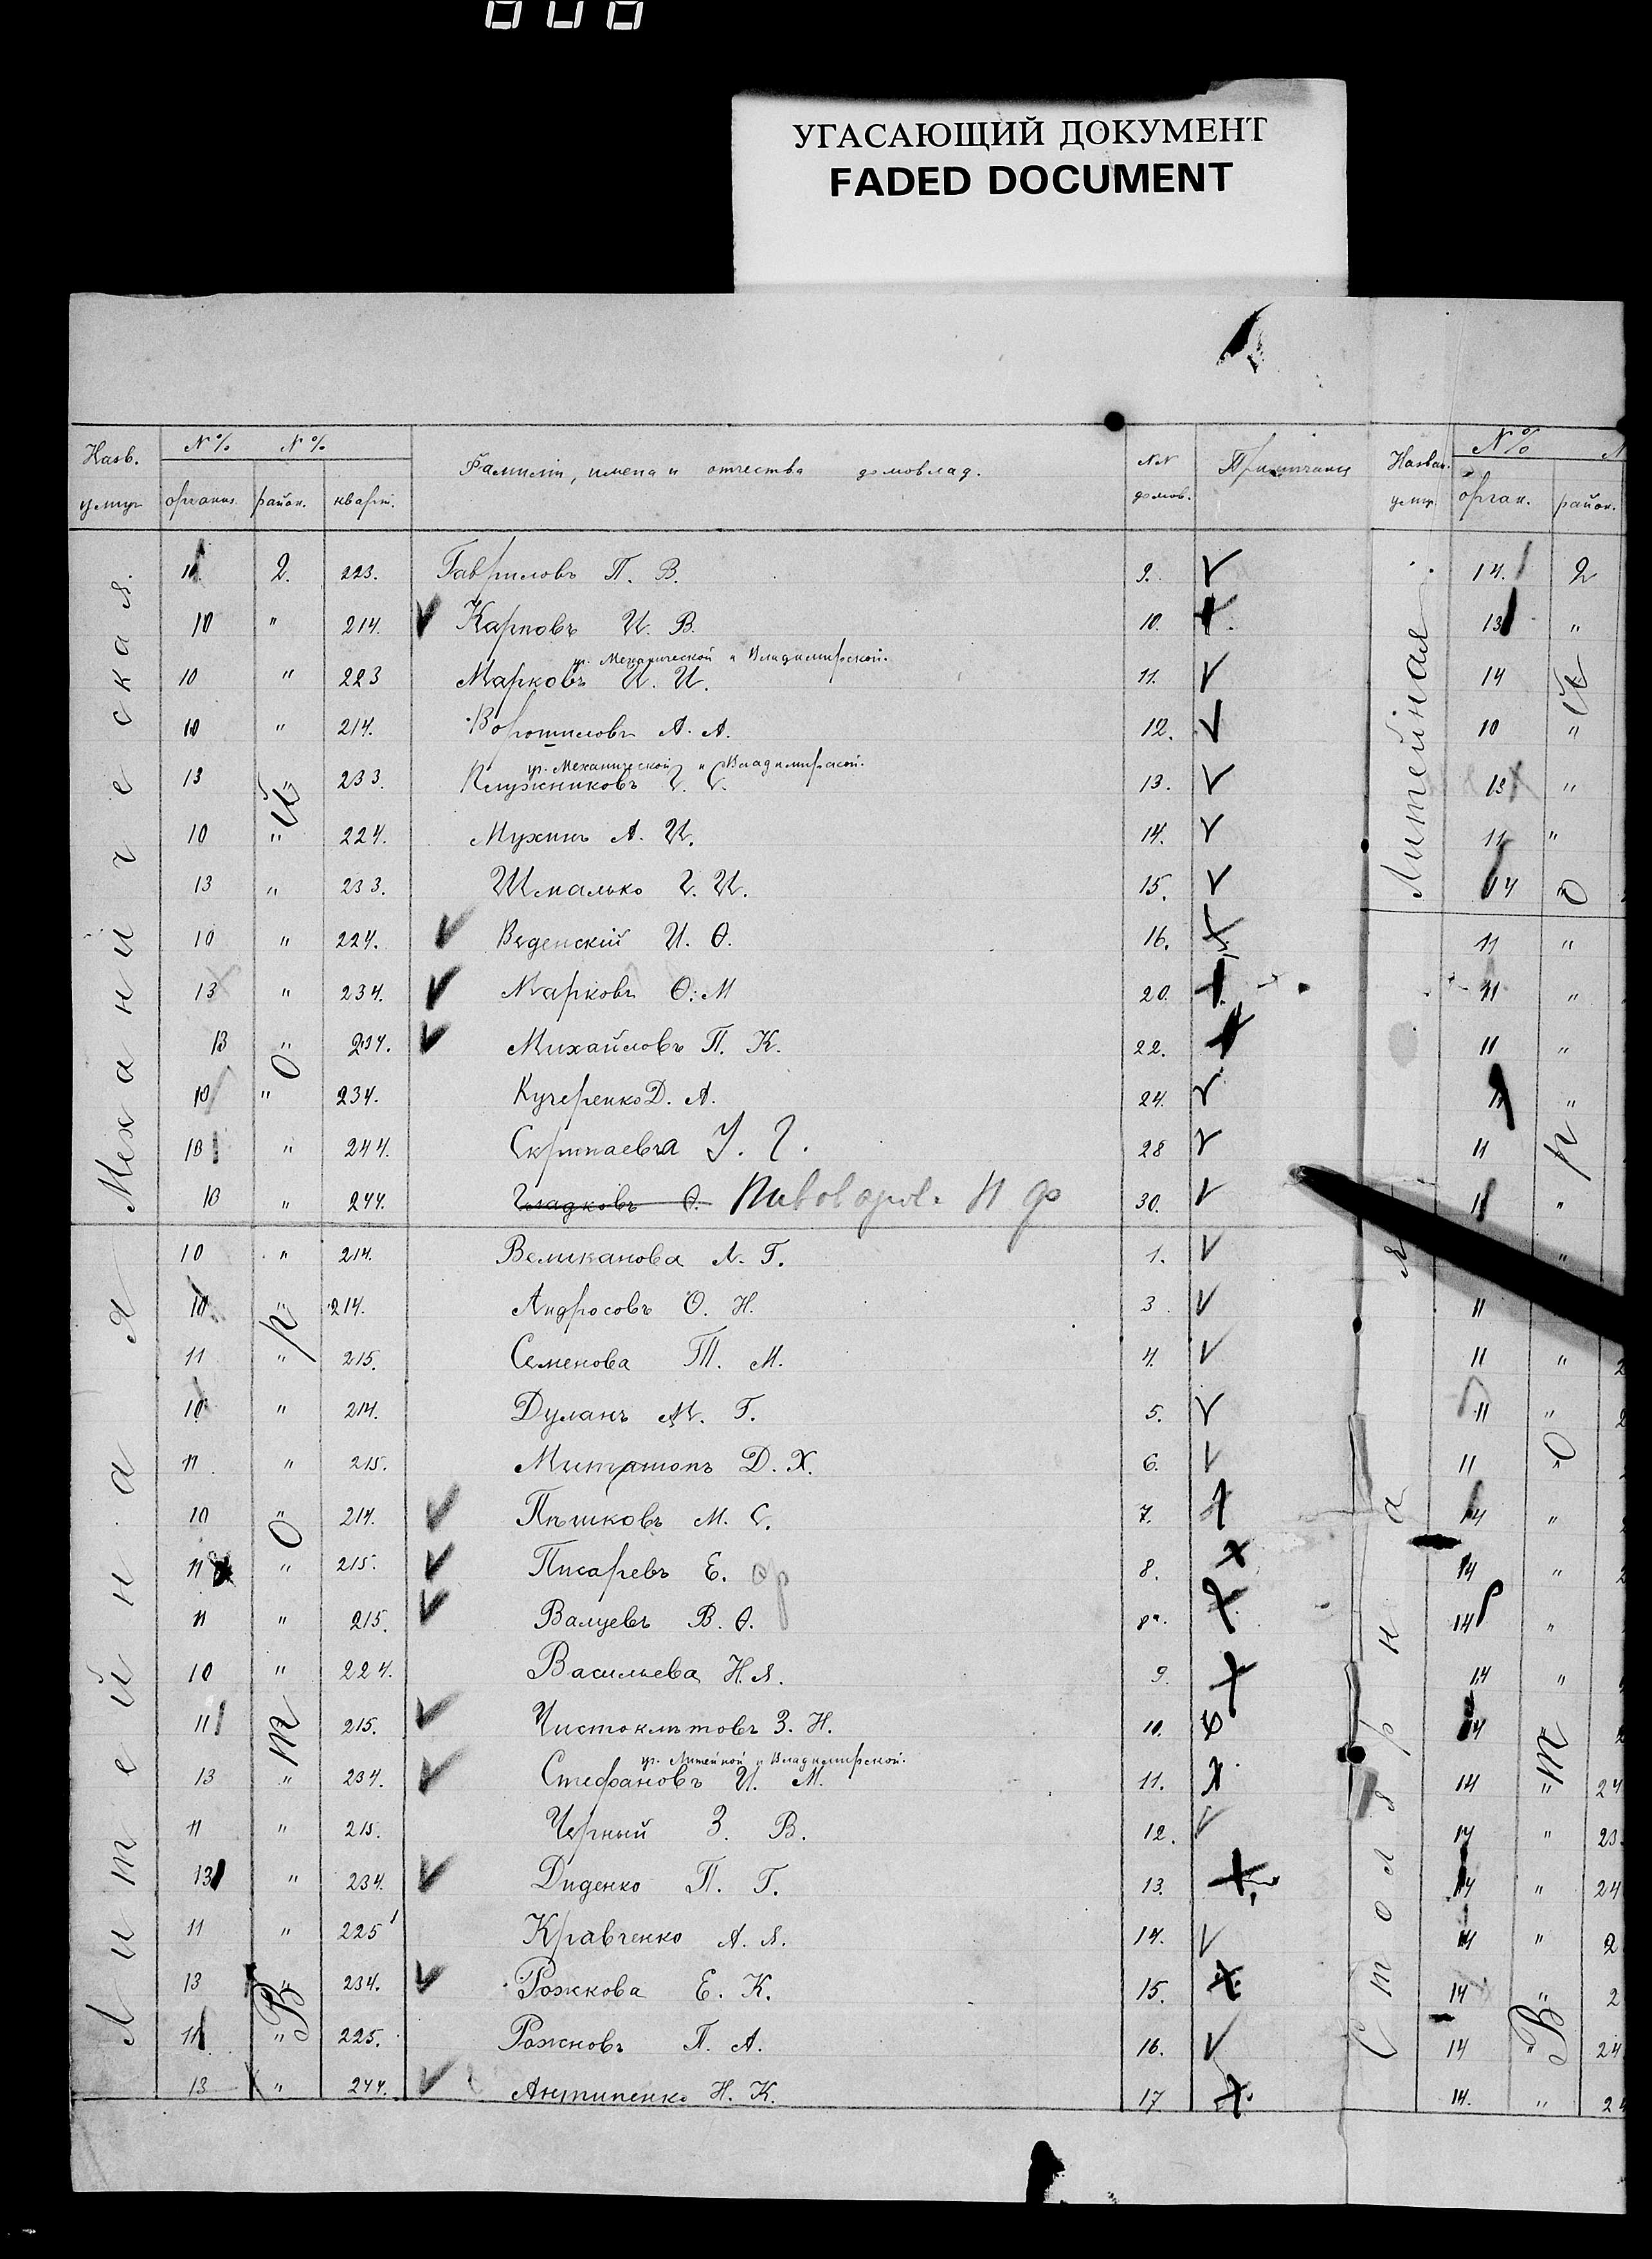 УГАСАЮЩИЙ ДОКУМЕНТ
FADED DOCUMENT
Назв. улиц № % органз. № % район. кварт. Фамилiи, имена и отчества домовлад. №№ домов. Примѣчанiя Назван. улиц № % орган. район.
Механическая
Второй
10 2. 223. Гавриловъ П. В. 9. V
10 " 214. V Карповъ И. В. 10.
уг. Механической и Владимирской.
10 " 223 Марковъ И. И. 11. V
10 " 214. Ворошиловъ А. А. 12. V
уг. Механической и Владимирской.
13 " 233. Клужниковъ С. С. 13. V
10 " 224. Мухинъ А. И. 14. V
13 " 233. Шмалько С. И. 15. V
10 " 224. V Веденскiй И. Ѳ. 16. X
13 " 234. V Марковъ Ѳ. М 20. X
13 " 234. V Михайловъ П. К. 22.
10 " 234. Кучеренко Д. А. 24. V
10 " 244. Скрипаева У. Г. 28 V
10 " 244. Гладковъ Ѳ. Пивоваров. И Ф 30. V
Литейная
10 " 214. Великанова А. Г. 1. V
10 " 214. Андросовъ Ѳ. Н. 3. V
11 " 215. Семенова Т. М. 4. V
10 " 214. Дуланъ М. Г. 5. V
11 " 215. Д. Х. 6. V
10 " 214. V Пѣшковъ М. С. 7.
11 " 215. V Писаревъ Е. Ф 8. X
11 " 215. V Валуевъ В. Ѳ. 8а. X
10 " 224. Васильева Н. Я. 9. X
11 " 215. V Чистоклѣтовъ З. Н. 10.
уг. Литейной и Владимирской.
13 " 234. V Стефановъ И. М. 11. X
11 " 215. Черный З. В. 12. V
13 " 234. V Диденко П. Г. 13. X
11 " 225 Кравченко А. Я. 14. V
13 " 234. V Рожкова Е. К. 15. X
11 " 225. Рожновъ П. А. 16. V
13 " 244. V Антипенко Н. К. 17 X
Литейная
Второй
14. 2
13 "
14
10 "
13 "
11 "
14 "
Столярная
11 "
11 "
11 "
11 "
11
11 "
"
11
11 "
11 "
11
14 "
14 "
14 "
14 "
14
14 " 24
14 " 23
14 " 24
14 " 2
14 " 2
14 " 24
14. " 2